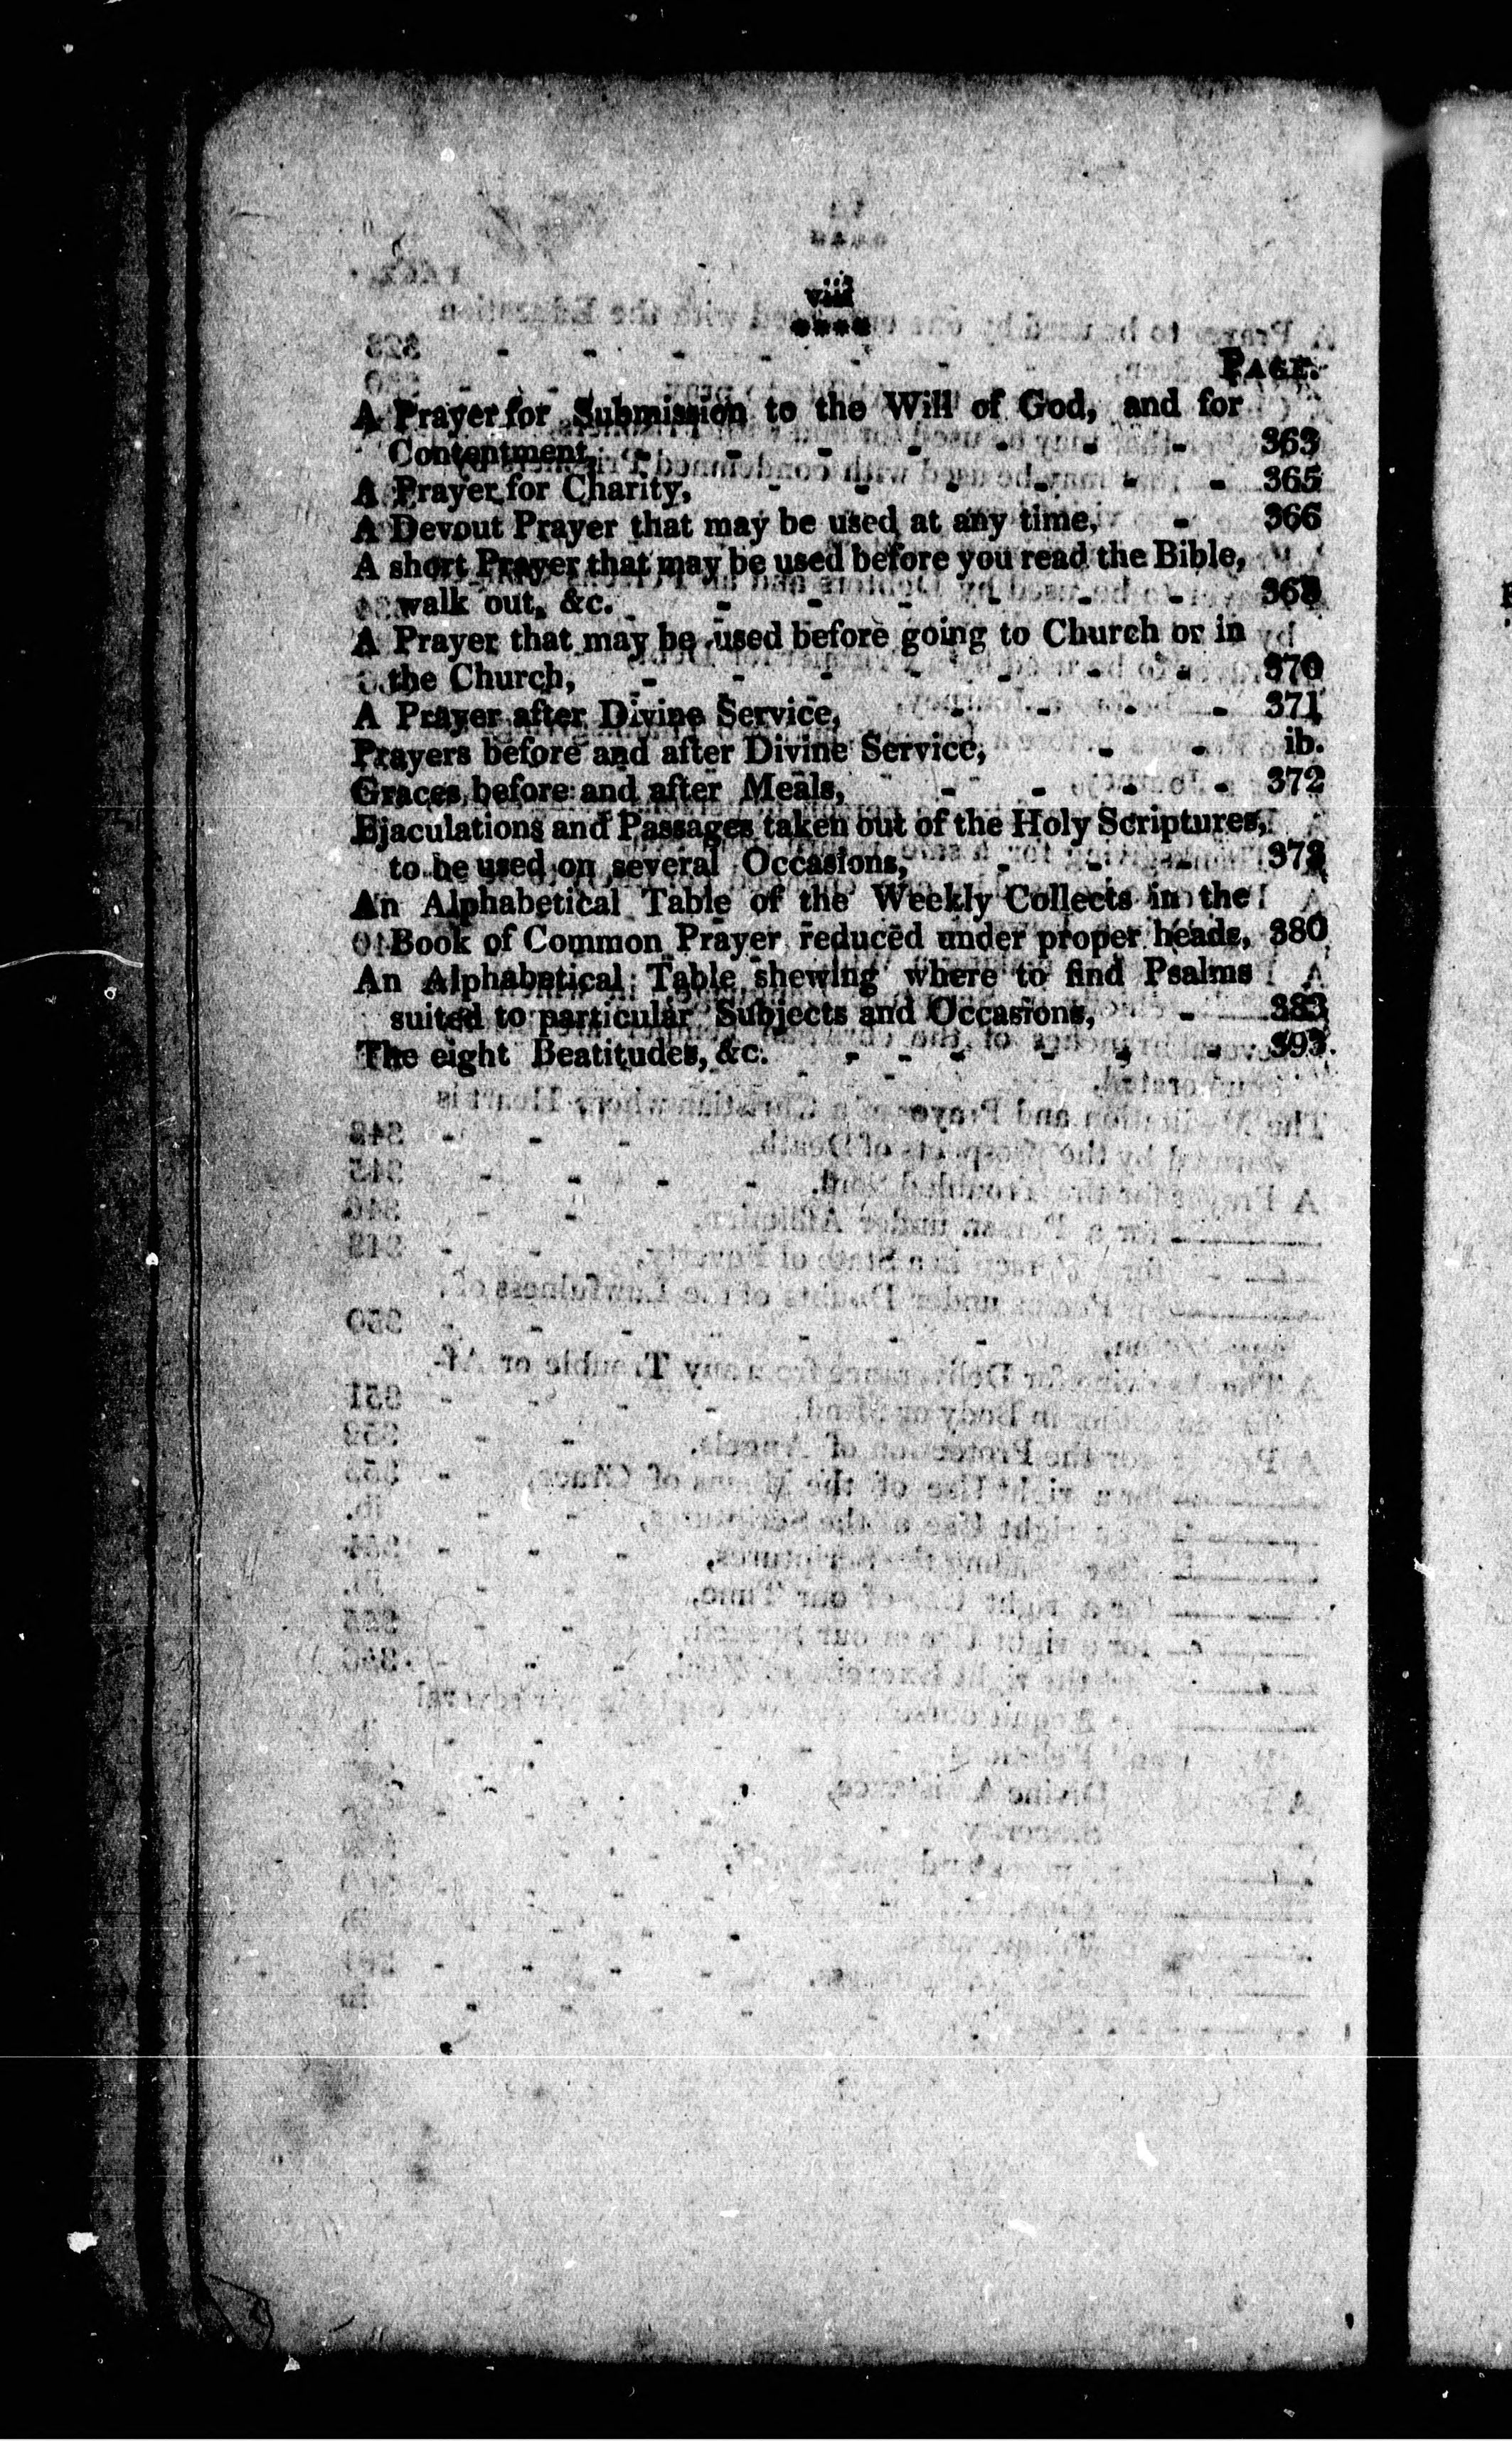 viii
****
PAGE.
A Prayer for Submission to the Will of God, and for
Contentment, - - - - - - - 363
A Prayer for Charity, - - - - - - 365
A Devout Prayer that may be used at any time, - 366
A short Prayer that may be used before you read the Bible,
walk out, &c. - - - - - - 368
A Prayer that may be used before going to Church or in
the Church, - - - - - - - 370
A Prayer after Divine Service, - - - - 371
Prayers before and after Divine Service, - - ib.
Graces before and after Meals, - - - - 372
Ejaculations and Passages taken out of the Holy Scriptures,
to be used on several Occasions, - - - 373
An Alphabetical Table of the Weekly Collects in the
Book of Common Prayer reduced under proper heads, 380
An Alphabetical Table shewing where to find Psalms
suited to particular Subjects and Occasions, - 383
The eight Beatitudes, &c. - - - - - - 393